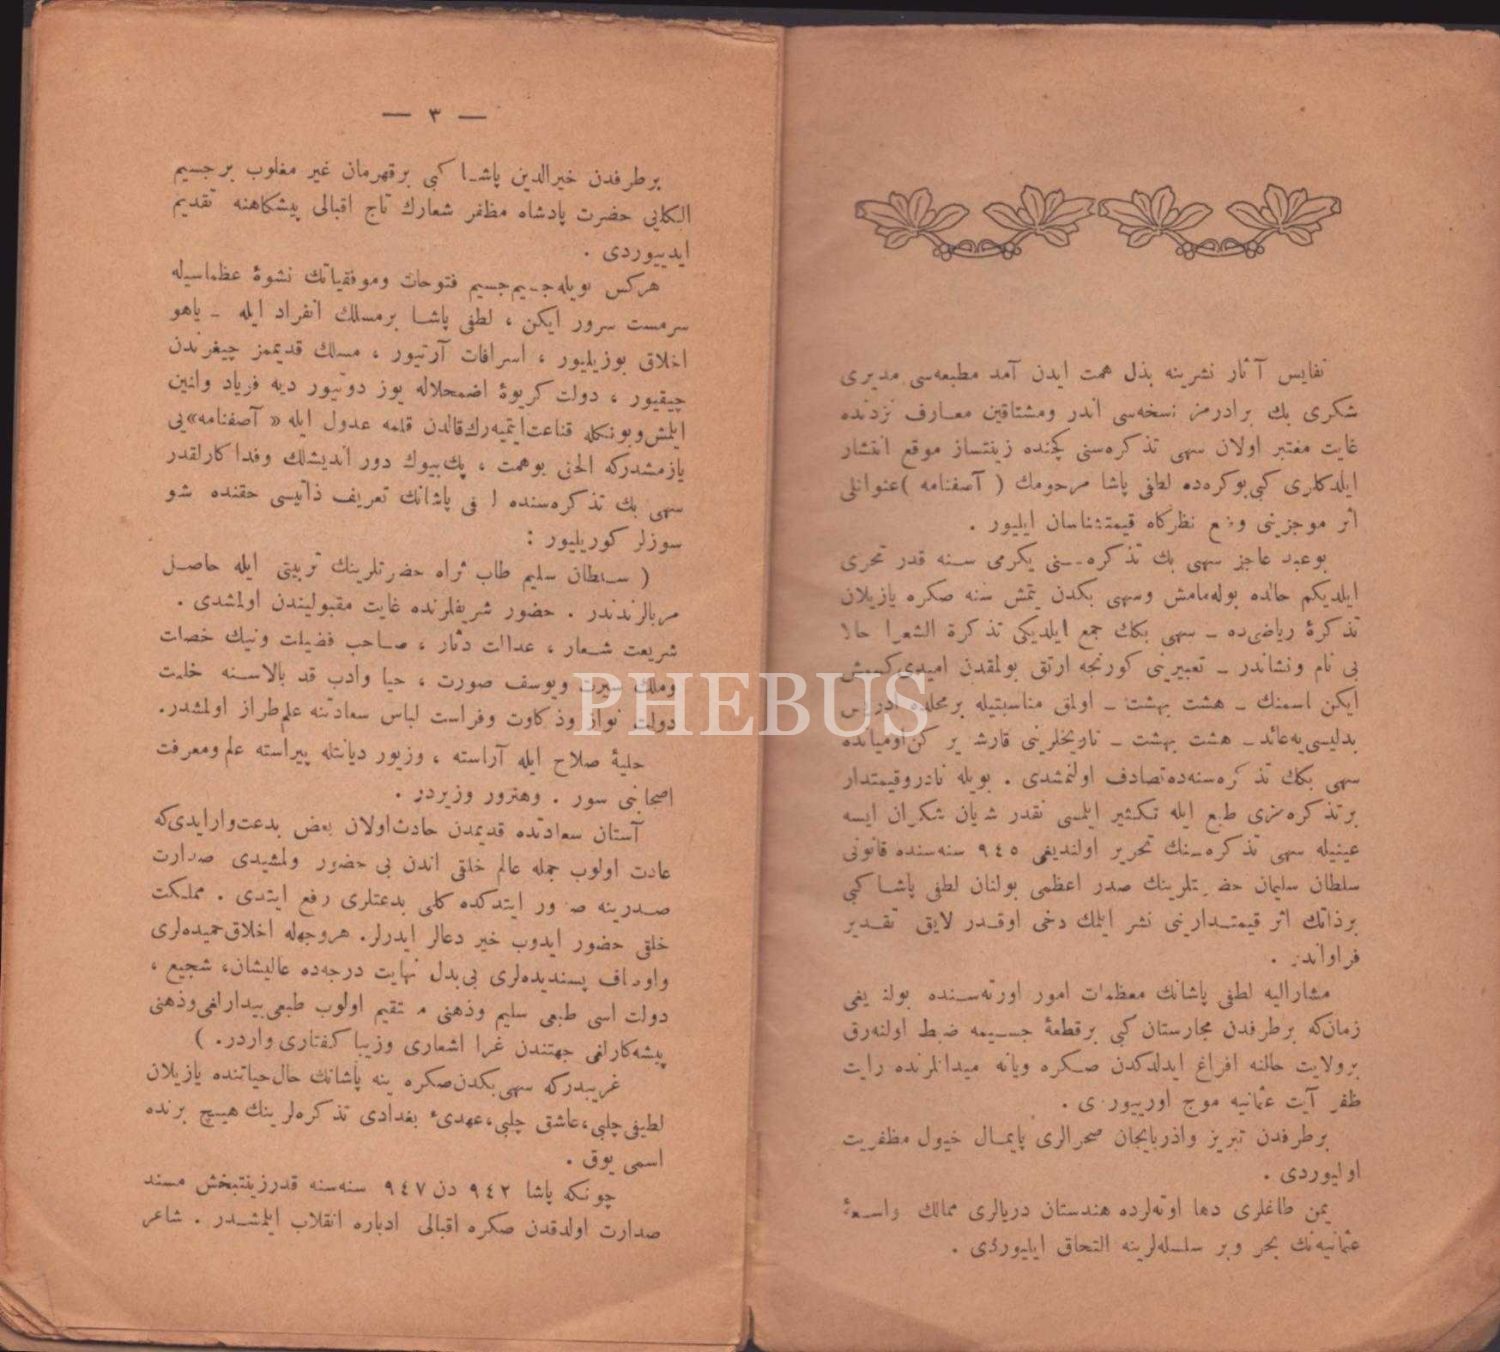 نفایس آثار نشرینه بذل همت ایدن آمد مطبعه‌سی مدیری
شکری بك برادرمز نسخه‌سی اندر ومشتاقین معارف نزدنده
غایت معتبر اولان سهی تذکره‌سنی کچنده زینتساز موقع انتشار
ایلدکلری کبی بوکره‌ده لطفی پاشا مرحومك ( آصفنامه )عنوانلی
اثر موجزینی وضع نظرکاه قیمتشناسان ایلیور .
بوعبد عاجز سهی بك تذکره‌سنی یکرمی سنه قدر تحری
ایلدیکم حالده بوله‌مامش وسهی بکدن یتمش سنه صکره یازیلان
تذکرهٔ ریاضی‌ده ـ سهی بكك جمع ایلدیکی تذکرة الشعرا حالا
بی نام ونشاندر ـ تعبیرینی کورنجه ارتق بولمقدن امیدی کسمش
ایکن اسمنك ـ هشت بهشت ـ اولمق مناسبتیله برمحلده ادریس
بدلیسی‌یه‌عائد ـ هشت بهشت ـ تاریخلرینی
سهی بكك تذکره‌سنه‌ده تصادف اولنمشدی . بویله نادروقیمتدار
برتذکره‌مزی طبع ایله تکثیر ایلمسی نقدر شایان شکران ایسه
عینیله سهی تذکره‌سنك تحریر اولندیغی ٩٤٥ سنه‌سنده قانونی
سلطان سلیمان حضرتلرینك صدر اعظمی بولنان لطفی پاشا کبی
برذاتك اثر قیمتدارینی نشر ایلمك دخی اوقدر لایق تقدیر
فراواندر .
مشارالیه لطفی پاشانك معظمات امور اورته‌سنده بولندیغی
زمان‌که برطرفدن مجارستان کبی برقطعهٔ جسیمه ضبط اولنه‌رق
برولایت حالنه افراغ ایدلدکدن صکره ویانه میدانلرنده رایت
ظفر آیت عثمانیه موج اورییوردی .
برطرفدن تبریز واذربایجان صحرالری پایمال خیول مظفریت
اولیوردی .
یمن طاغلری دها اوته‌لرده هندستان دریالری ممالك واسعهٔ
عثمانیه‌نك بحر وبر سلسله‌لرینه التحاق ایلیوردی .
— ٣ —
برطرفدن خیرالدین پاشا کبی برقهرمان غیر مغلوب برجسیم
حضرت پادشاه مظفر شعارك تاج اقبالی پیشکاهنه تقدیم
ایدییوردی .
هرکس بویله‌جسیم‌جسیم فتوحات وموفقیاتك نشوهٔ عظماسیله
سرمست سرور ایکن ، لطفی پاشا برمسلك انفراد ایله ـ یاهو
اخلاق بوزیلیور ، اسرافات آرتیور ، مسلك قدیممز چیغرندن
چیقیور ، دولت کریوهٔ اضمحلاله یوز دوتیور دیه فریاد وانین
ایلمش‌وبونکله قناعت‌ایتمیه‌رك‌قالدن قلمه عدول ایله « آصفنامه»یی
یازمشدرکه الحق بوهمت ، پك‌بیوك دور اندیشلك وفداکارلقدر
سهی بك تذکره‌سنده لطفی پاشانك تعریف ذاتیسی حقنده شو
سوزلر کوریلیور :
( سلطان سلیم طاب ثراه حضرتلرینك تربیتی ایله حاصل
مربالرندندر . حضور شریفلرنده غایت مقبولیندن اولمشدی .
شریعت شعار ، عدالت دثار ، صاحب فضیلت ونیك خصلت
وملك سیرت ویوسف صورت ، حیا وادب قد بالاسنه خلعت
دولت نواز وذکاوت وفراست لباس سعادتنه علم‌طراز اولمشدر.
حلیهٔ صلاح ایله آراسته ، وزیور دیانتله پیراسته علم‌ومعرفت
اصحابنی سور . وهنرور وزیردر .
آستان سعادتده قدیمدن حادث‌اولان بعض بدعت‌وارایدی‌که
عادت اولوب جمله عالم خلقی اندن بی حضور ولمشیدی صدارت
صدرینه ایتدکده کلی بدعتلری رفع ایتدی . مملکت
خلقی حضور ایدوب خیر دعالر ایدرلر. هروجهله اخلاق‌حمیده‌لری
واوصاف پسندیده‌لری بی‌بدل نهایت درجه‌ده عالیشان، شجیع ،
دولت اسی طبعی سلیم وذهنی مستقیم اولوب طبعی‌بیدارلغی‌وذهنی
پیشه‌کارلغی جهتندن غرا اشعاری وزیبا کفتاری‌واردر. )
غریبدرکه سهی‌بکدن‌صکره ینه پاشانك حال‌حیاتنده یازیلان
لطیفی‌چلبی،عاشق چلبی،عهدیء بغدادی تذکره‌لرینك هیچ برنده
اسمی یوق .
چونکه پاشا ٩٤٢ دن ٩٤٧ سنه‌سنه قدرزینتبخش مسند
صدارت اولدقدن صکره اقبالی ادباره انقلاب ایلمشدر . شاعر
PHEBUS